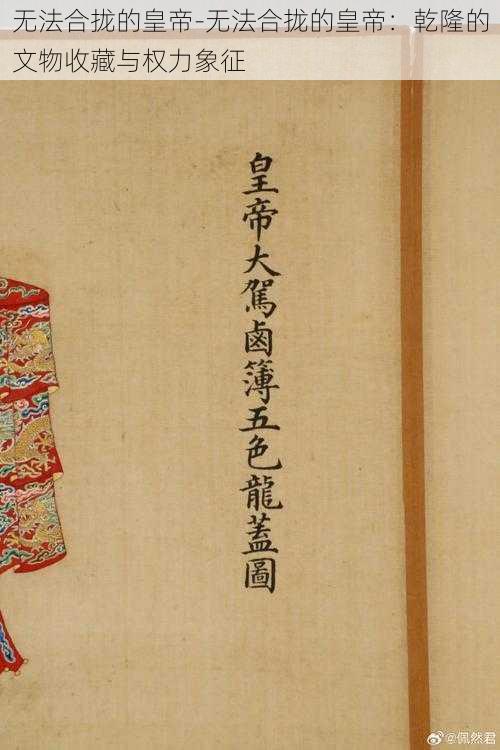 无法合拢的皇帝-无法合拢的皇帝：乾隆的
文物收藏与权力象征
皇帝大駕鹵簿五色龍蓋圖
@佩然君